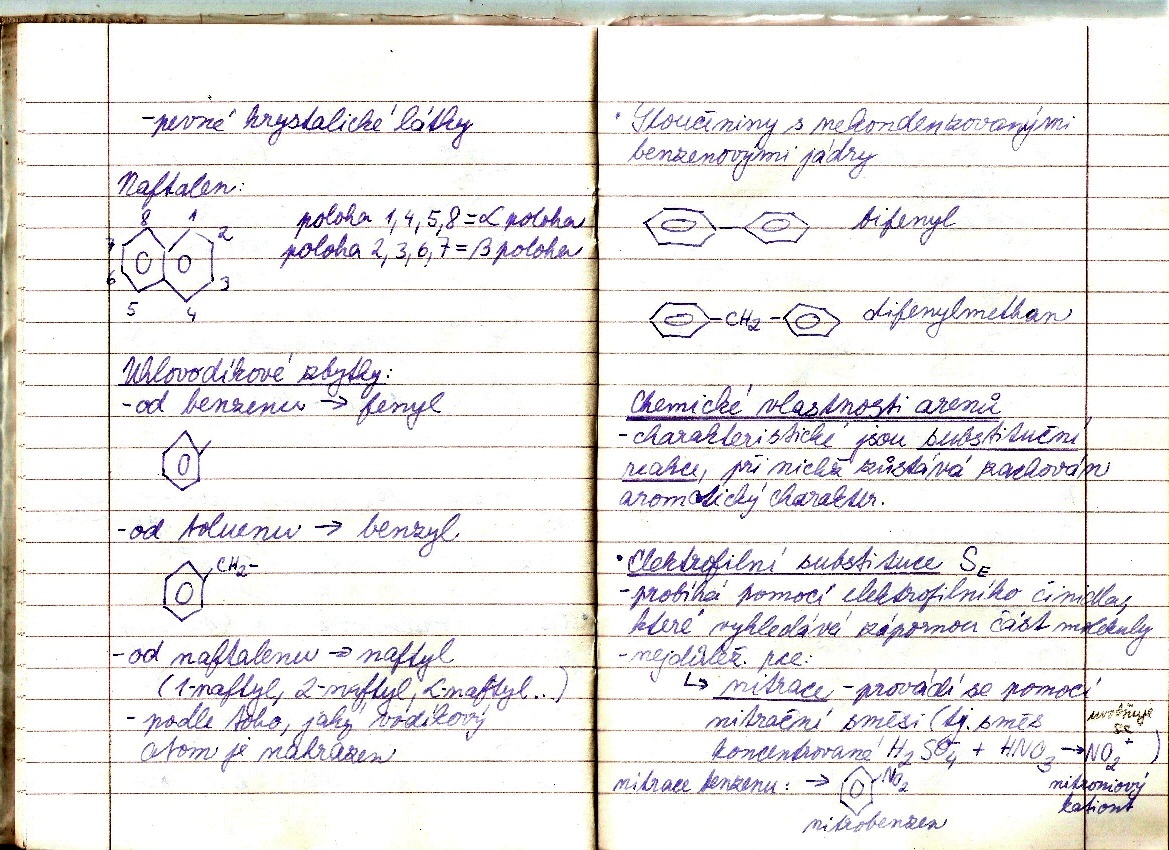 -pevné krystalické látky
Naftalen:
8 1
7 2
6 3
5 4
poloha 1,4,5,8 = α poloha
poloha 2,3,6,7 = β poloha
Uhlovodíkové zbytky:
-od benzenu → fenyl
-od toluenu → benzyl
CH2-
-od naftalenu → naftyl
(1-naftyl, 2-naftyl, α-naftyl...)
- podle toho, jaký vodíkový
atom je nahrazen
• Sloučininy s nekondenzovanými
benzenovými jádry
difenyl
-CH2- difenylmethan
Chemické vlastnosti arenů
-charakteristické jsou substituční
reakce, při nichž zůstává zachován
aromatický charakter.
• Elektrofilní substituce SE
-probíhá pomocí elektrofilního činidla,
které vyhledává zápornou část molekuly
-nejdůlež. rce:
↳ nitrace -provádí se pomocí
nitrační směsi (tj. směs
uvolňuje
se
koncentrované H2SO4 + HNO3 → NO2+ )
nitroniový
kationt
nitrace benzenu: → NO2
nitrobenzen